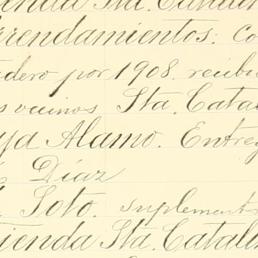 Arrendamientos: Co
dero por 1908. recibi
s vecinos Sta. Catal
ya Alamo. Entreg
Díaz
Soto. suplement
ienda Sta. Catali